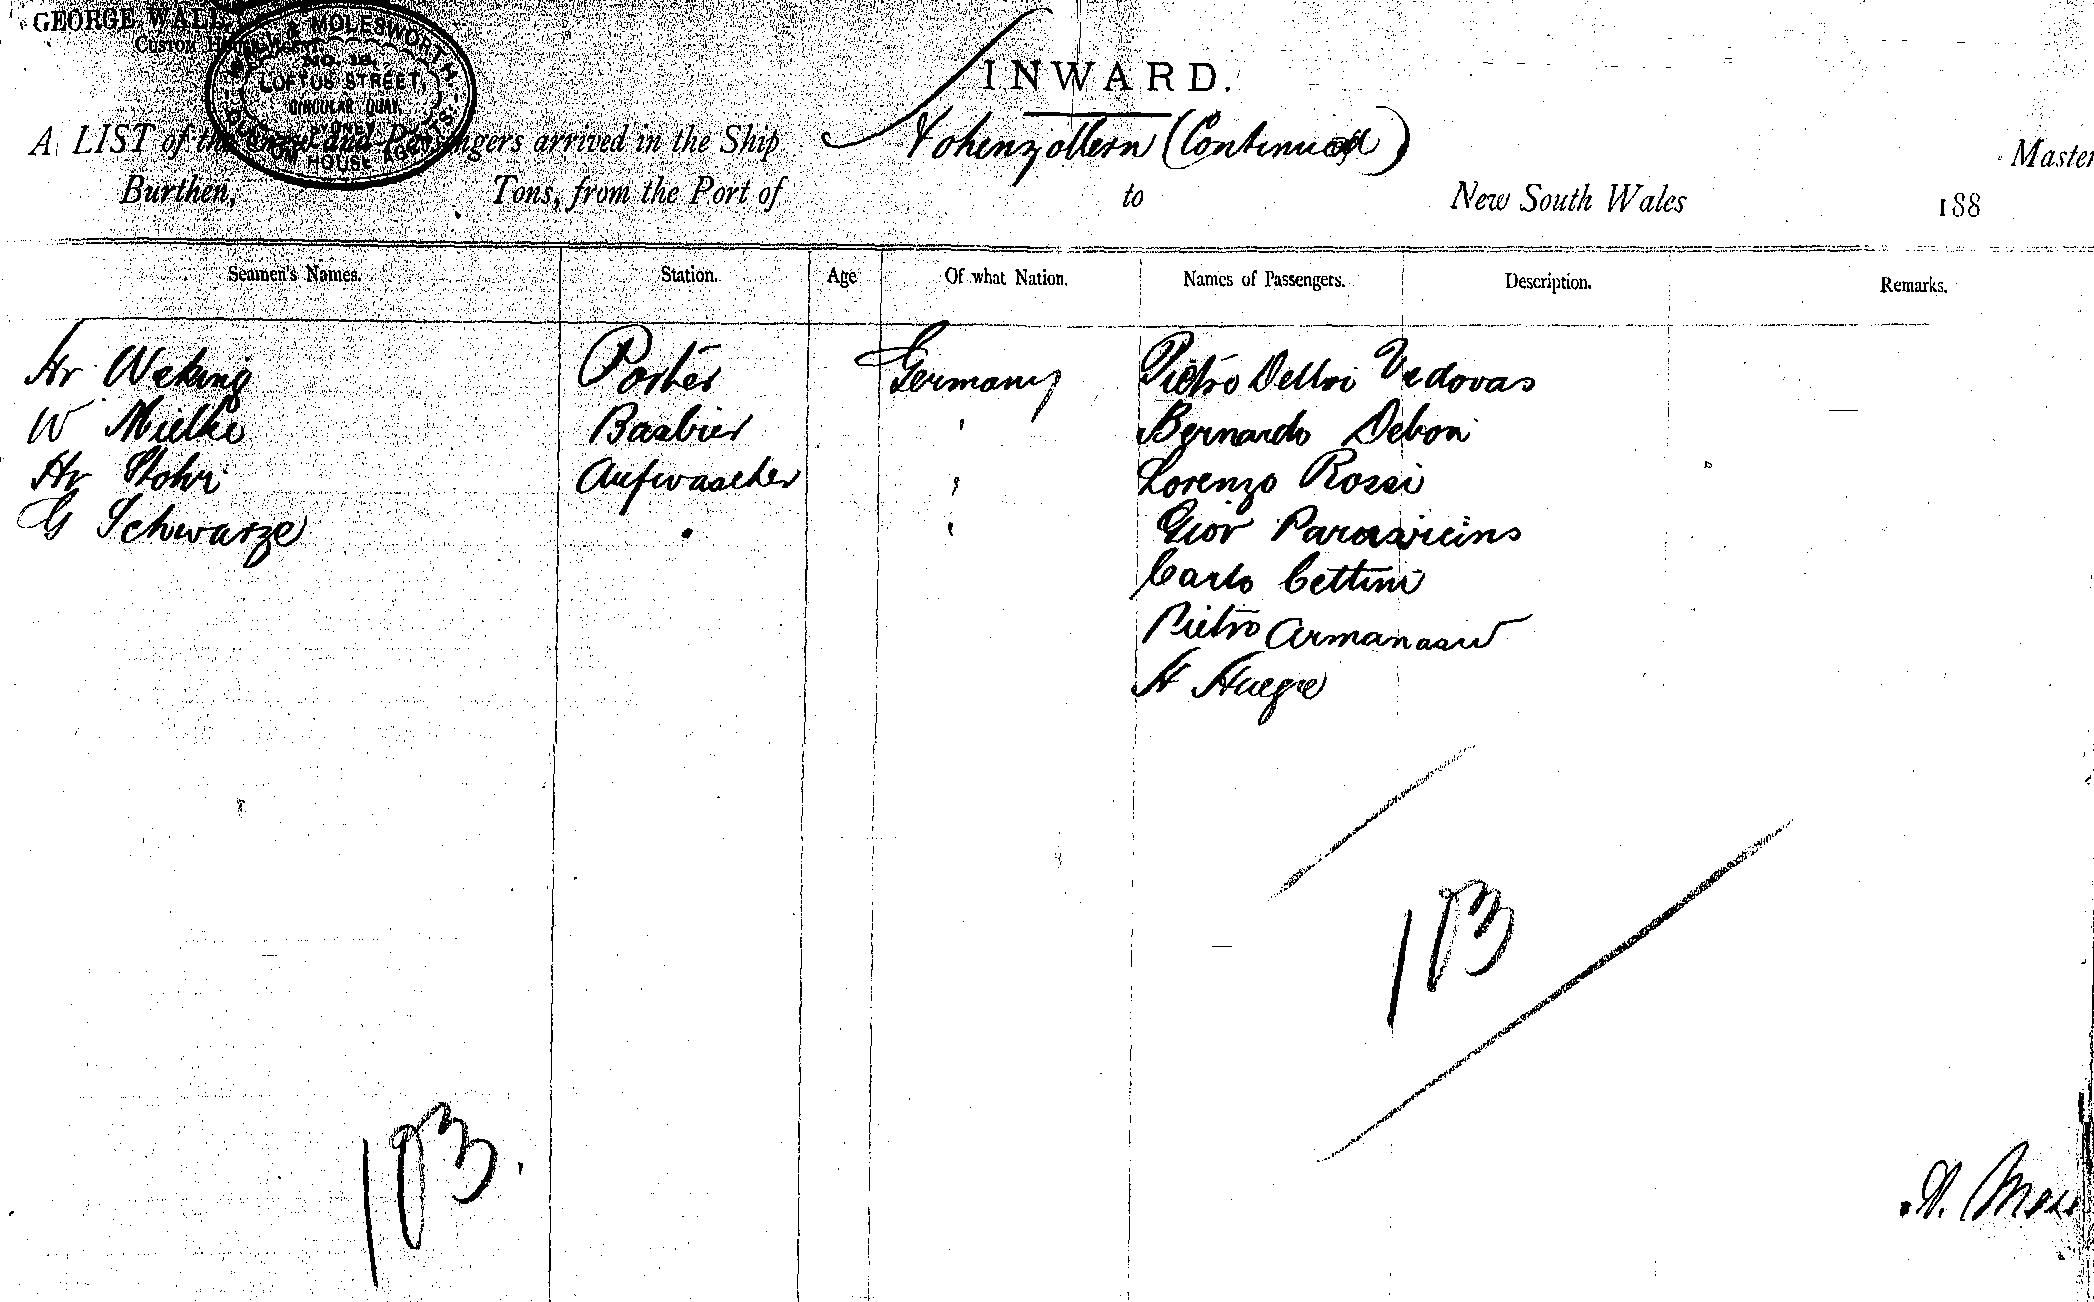 GEORGE WALL
Custom House Agent
WALL & MOLESWORTH
NO. 15,
LOFTUS STREET,
CIRCULAR QUAY,
SYDNEY
CUSTOM HOUSE AGENTS
INWARD.
A LIST of the Crew and Passengers arrived in the Ship Hohenzollern (Continued) Master
Burthen, Tons, from the Port of to New South Wales 188
Seamen's Names. Station. Age Of what Nation. Names of Passengers. Description. Remarks.
Hr Weking Porter Germany Pietro Dellvi Vedovas
W Mielke Barbier " Bernardo Debon
Hr Stohr Aufwascher " Lorenzo Rossi
G Schwarze " " Gior Paravicins
Carlo Cettini
Pietro
H Huege
103
103.
H.